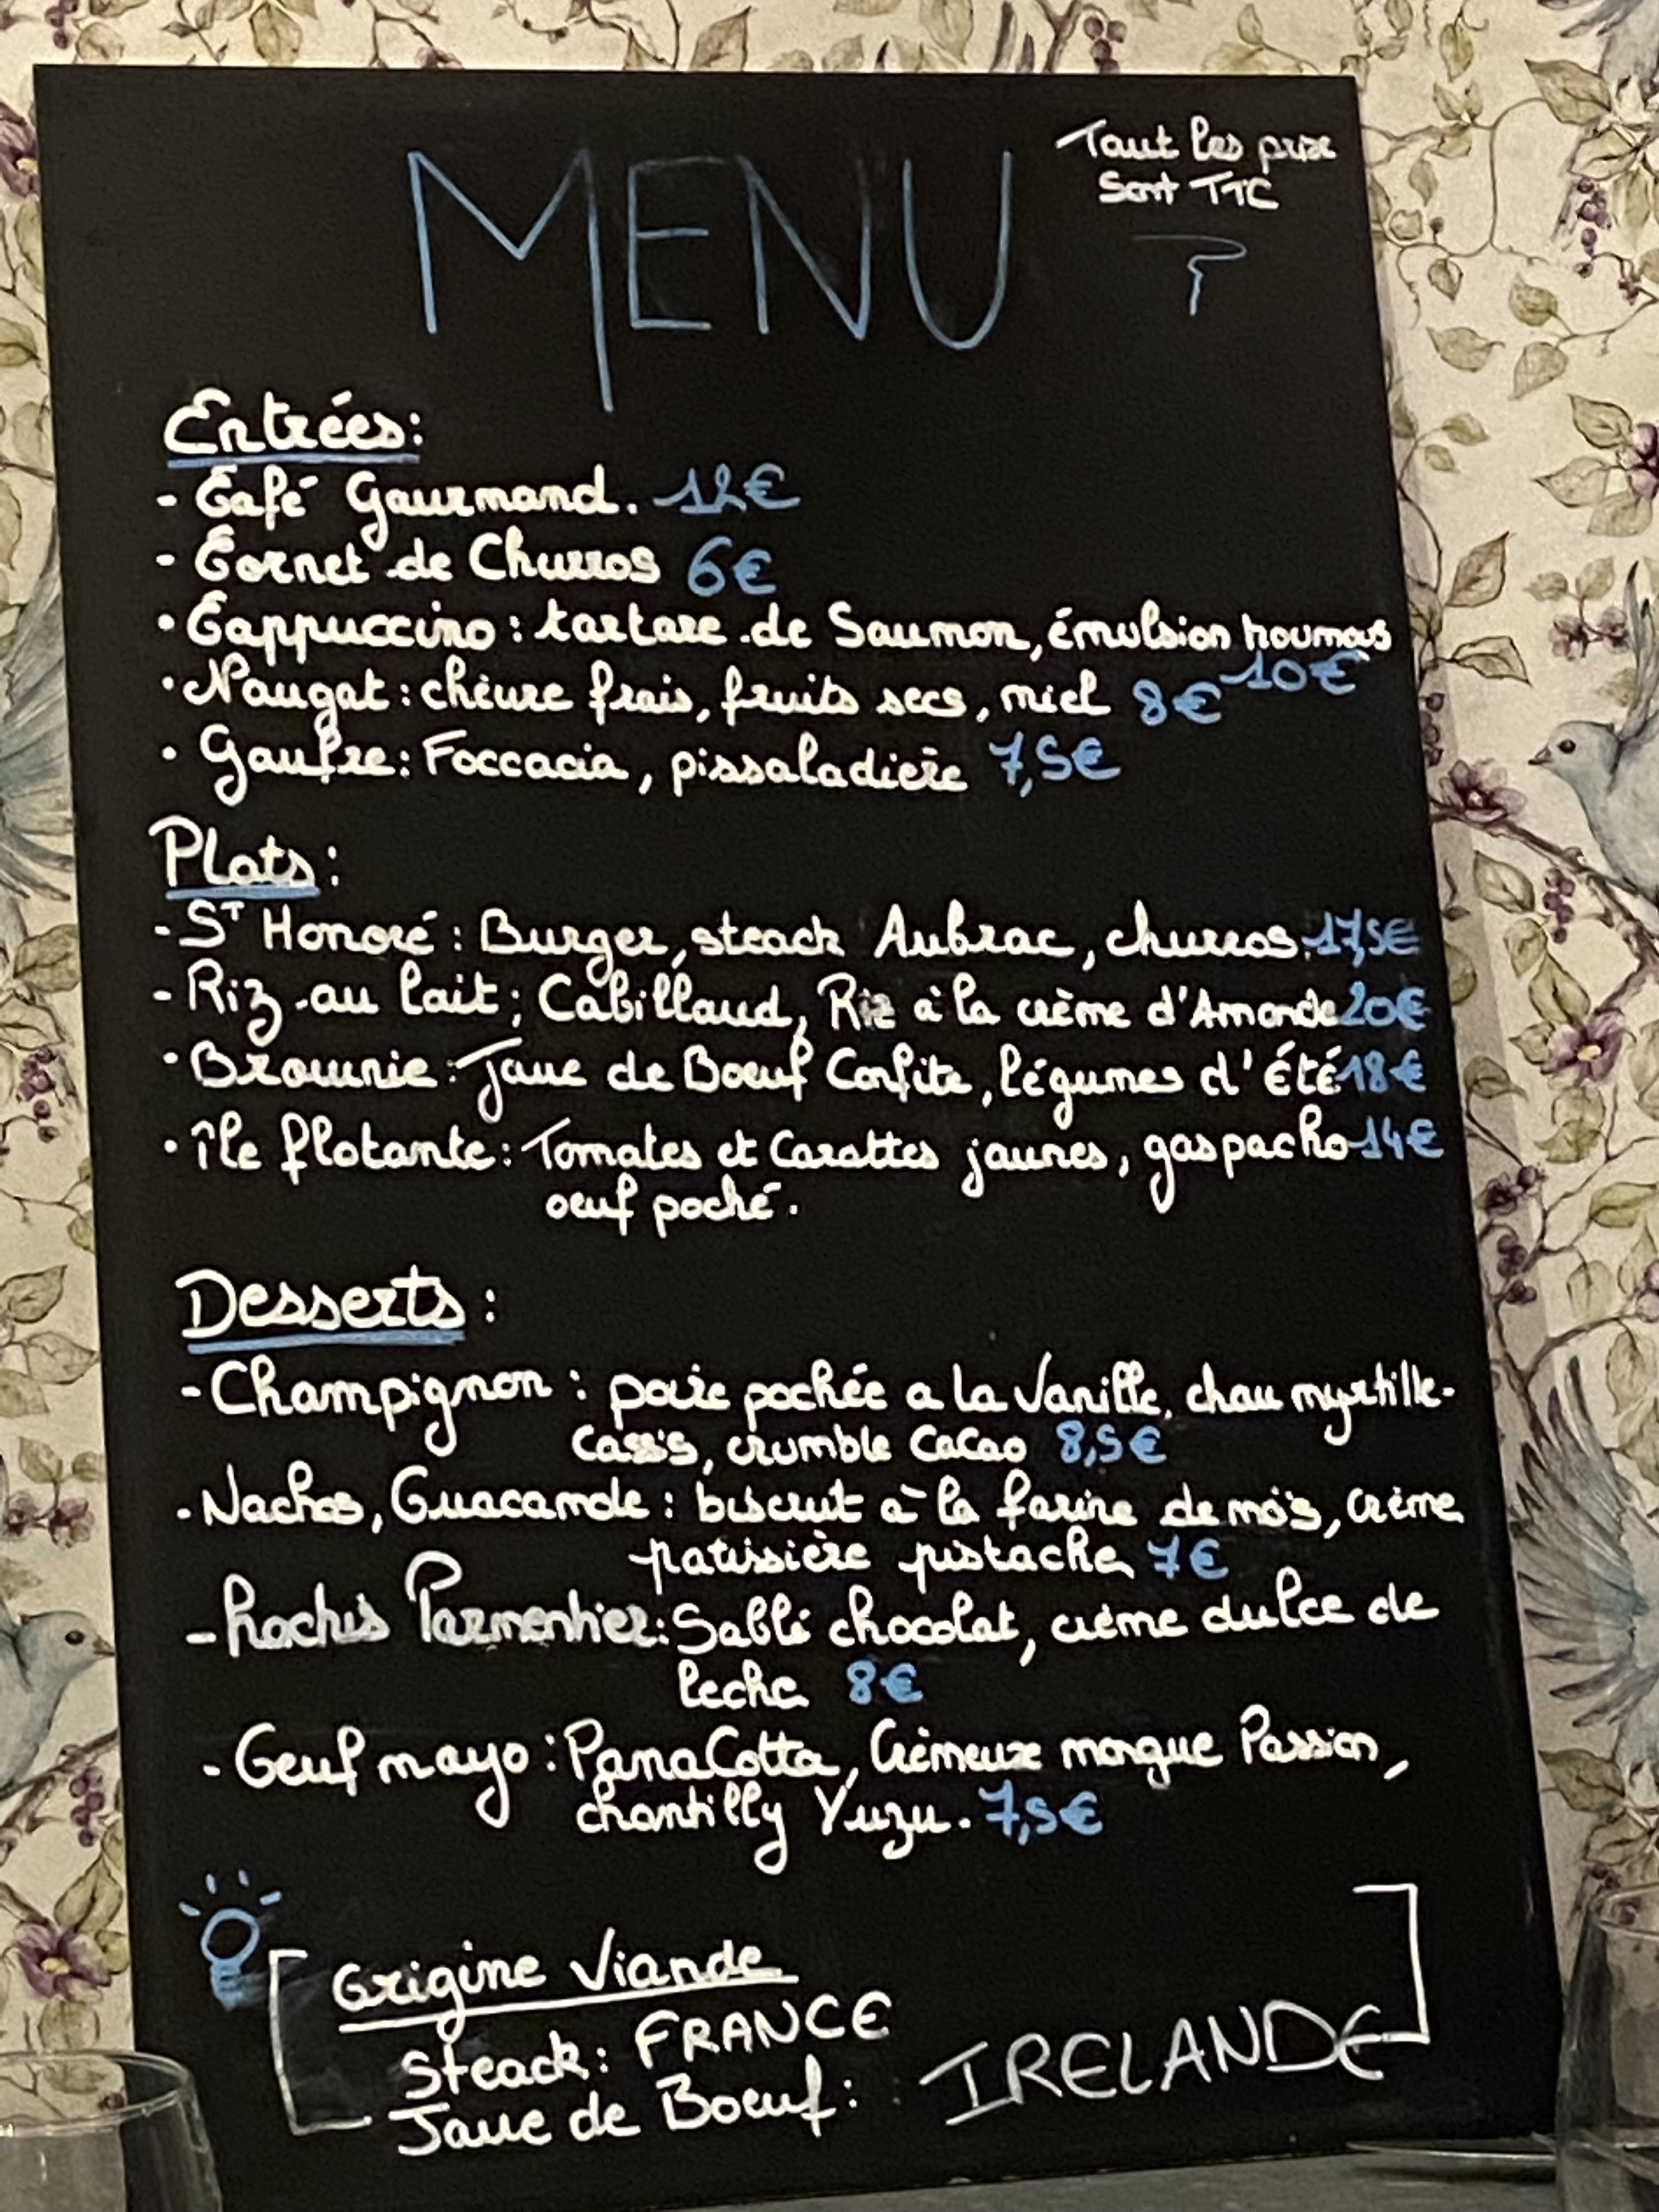 Tout les prix
sont TTC
MENU
Entrées:
- Café Gourmand. 12€
- Cornet de Churros 6€
• Cappuccino : tartare de Saumon, émulsion houmous
10€
• Nougat : chèvre frais, fruits secs, miel 8€
• Gaufre : Foccacia, pissaladière 7,5€
Plats :
- ST Honoré : Burger, steack Aubrac, churros. 17,5€
- Riz au lait ; Cabillaud, Riz à la crème d'Amande 20€
• Brownie : Joue de Boeuf Confite, légumes d'été 18€
• île flotante : Tomates et Carottes jaunes, gaspacho 14€
oeuf poché.
Desserts :
- Champignon : poire pochée a la Vanille, chou myrtille-
Cassis, crumble Cacao 8,5€
- Nachos, Guacamole : biscuit à la farine de maïs, crème
patissière pistache 7€
- hachis Parmentier : Sablé chocolat, crème dulce de
leche 8€
- Oeuf mayo : PanaCotta, Crèmeux mangue Passion,
chantilly Yuzu. 7,5€
Origine Viande
Steack : FRANCE
Joue de Boeuf : IRELANDE